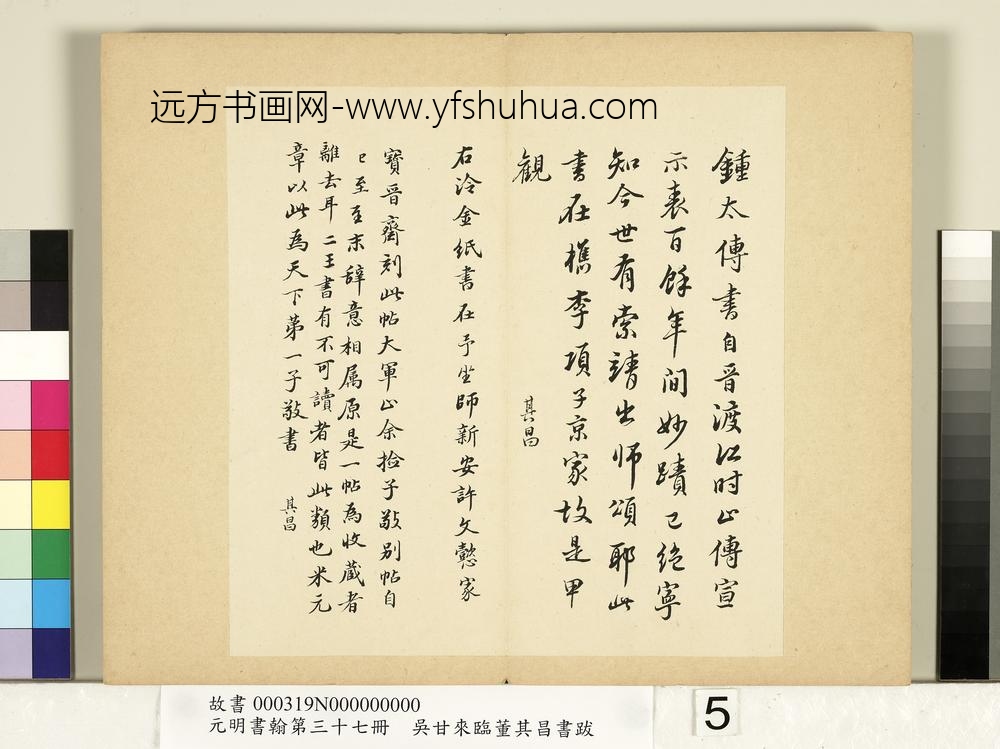 远方书画网-www.yfshuhua.com
鍾太傅書自晉渡江时止傳宣
示表百餘年间妙蹟已绝寧
知今世有索靖出师頌耶此
書在檇李項子京家故是甲
觀
其昌
右泠金紙書在予坐師新安許文懿家
寶晉齋刻此帖大軍止余拾子敬别帖自
已至至末辞意相属原是一帖為收藏者
離去耳二王書有不可讀者皆此類也米元
章以此為天下苐一子敬書
其昌
故書 000319N000000000
元明書翰第三十七冊 吳甘來臨董其昌書跋
5